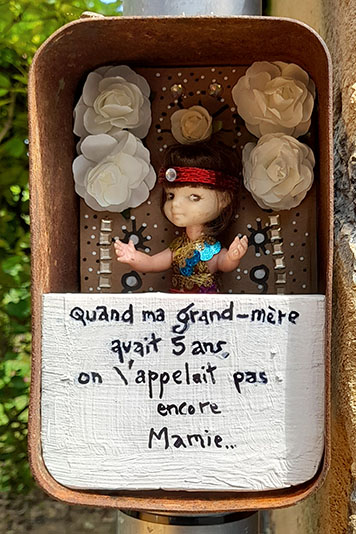 Quand ma grand-mère
avait 5 ans
on l'appelait pas
encore
Mamie..